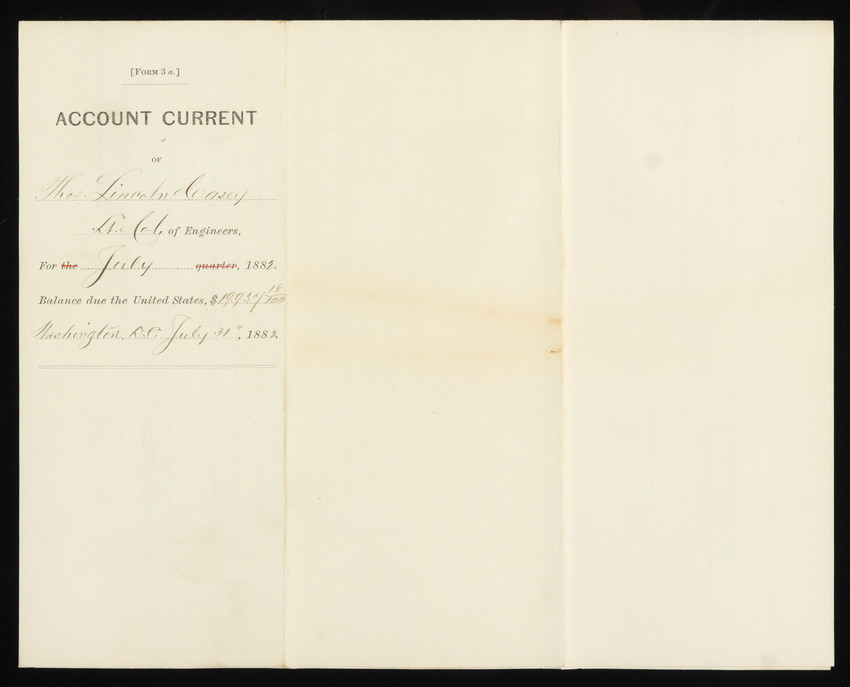 [FORM 3 a.]
ACCOUNT CURRENT
OF
Thos. Lincoln Casey
Lt. Col. of Engineers,
For the July quarter, 1882.
Balance due the United States, $ 18/100
Washington, D.C. July 31", 1882.